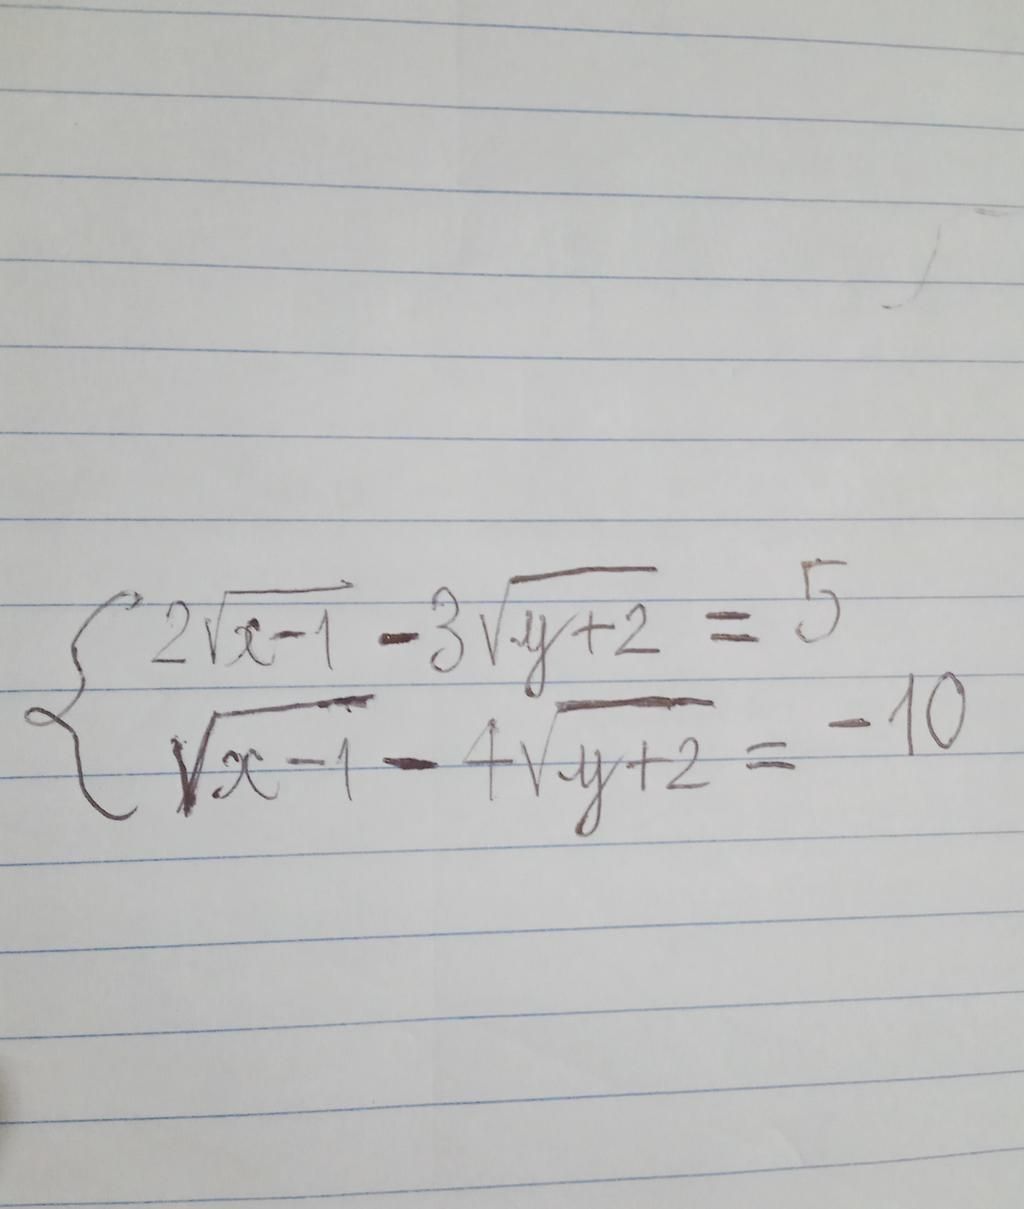 2√x-1 - 3√y+2 = 5
√x-1 - 4√y+2 = -10